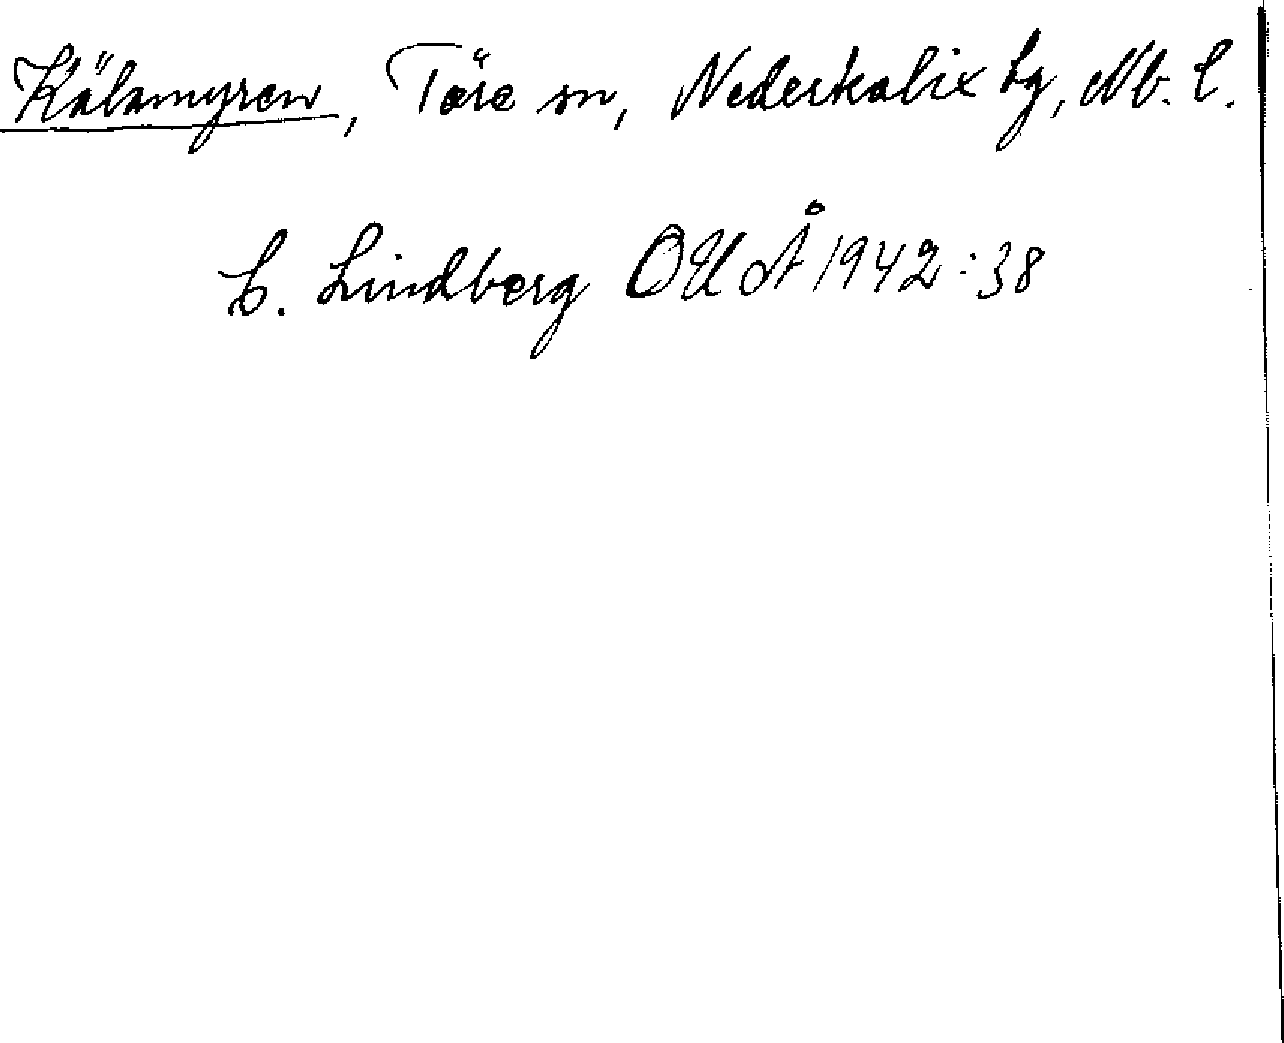 Kälamyren, Töre sn, Nederkalix tg, Nb. l.
C. Lindberg OUÅ 1942:38